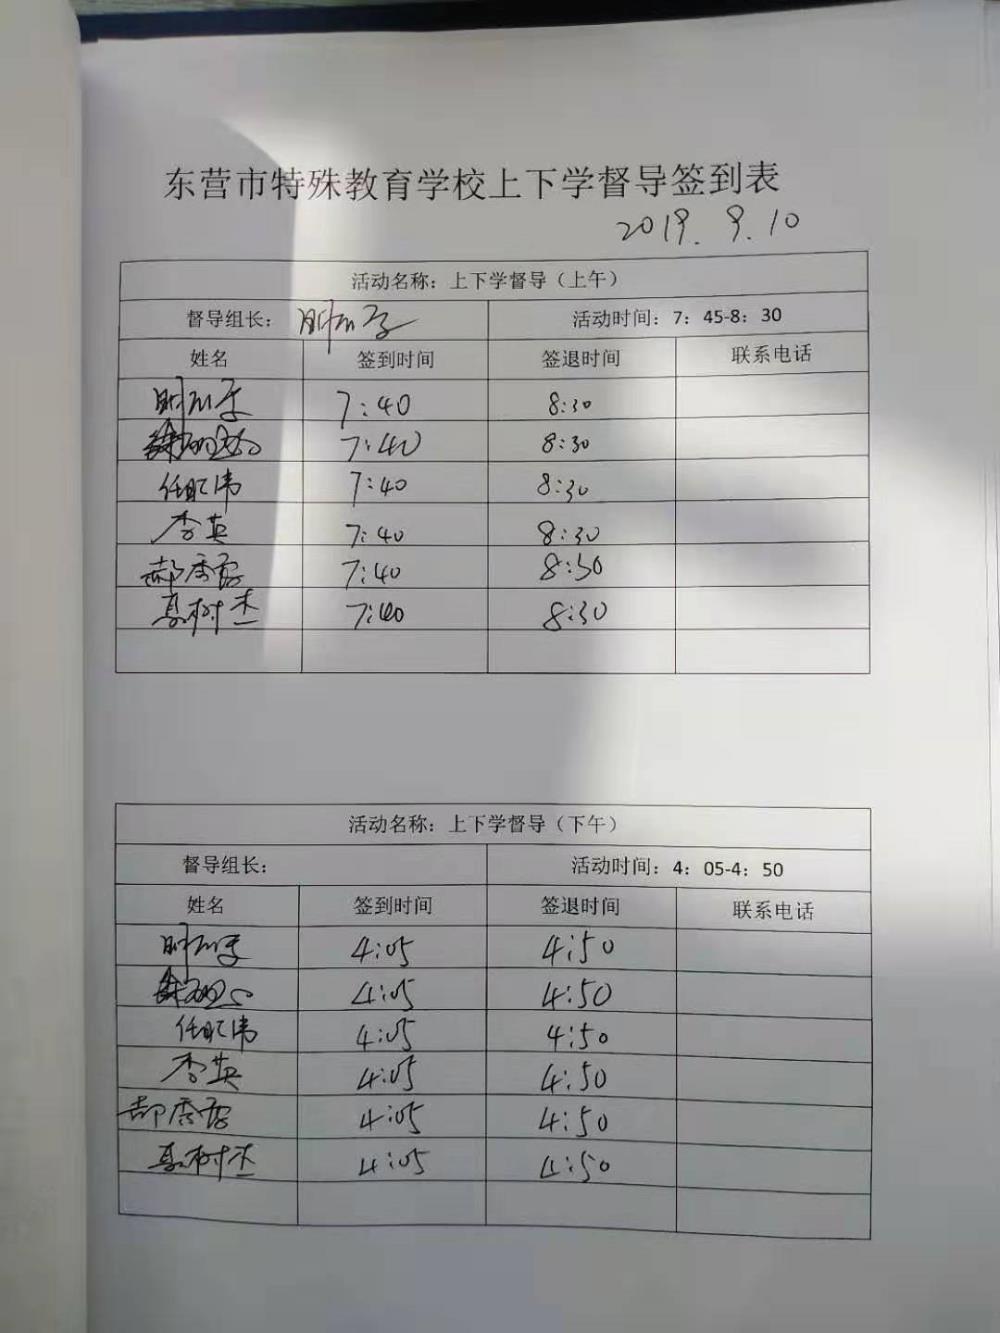 东营市特殊教育学校上下学督导签到表
2019. 9. 10
活动名称：上下学督导（上午）
督导组长： 活动时间：7：45-8：30
姓名 签到时间 签退时间 联系电话
7:40 8:30
7:40 8:30
任 伟 7:40 8:30
李英 7:40 8:30
郝秀 7:40 8:30
树杰 7:40 8:30
活动名称：上下学督导（下午）
督导组长： 活动时间：4：05-4：50
姓名 签到时间 签退时间 联系电话
4:05 4:50
4:05 4:50
任 伟 4:05 4:50
李英 4:05 4:50
郝秀 4:05 4:50
树杰 4:05 4:50